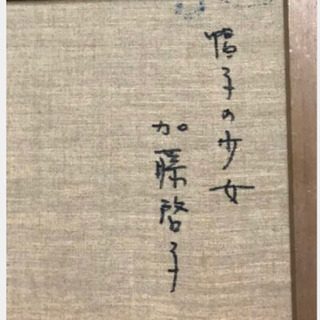 帽子の少女
加藤啓子